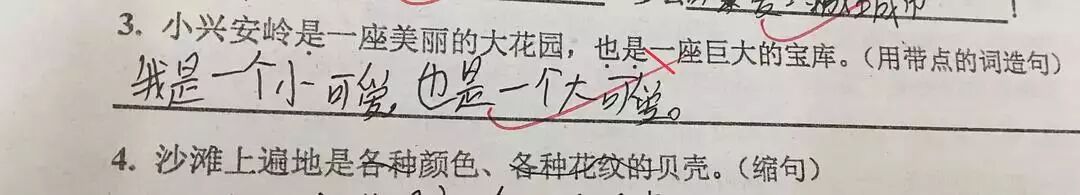 3. 小兴安岭是一座美丽的大花园，也是一座巨大的宝库。（用带点的词造句）
我是一个小可爱，也是一个大可爱。
4. 沙滩上遍地是各种颜色、各种花纹的贝壳。（缩句）